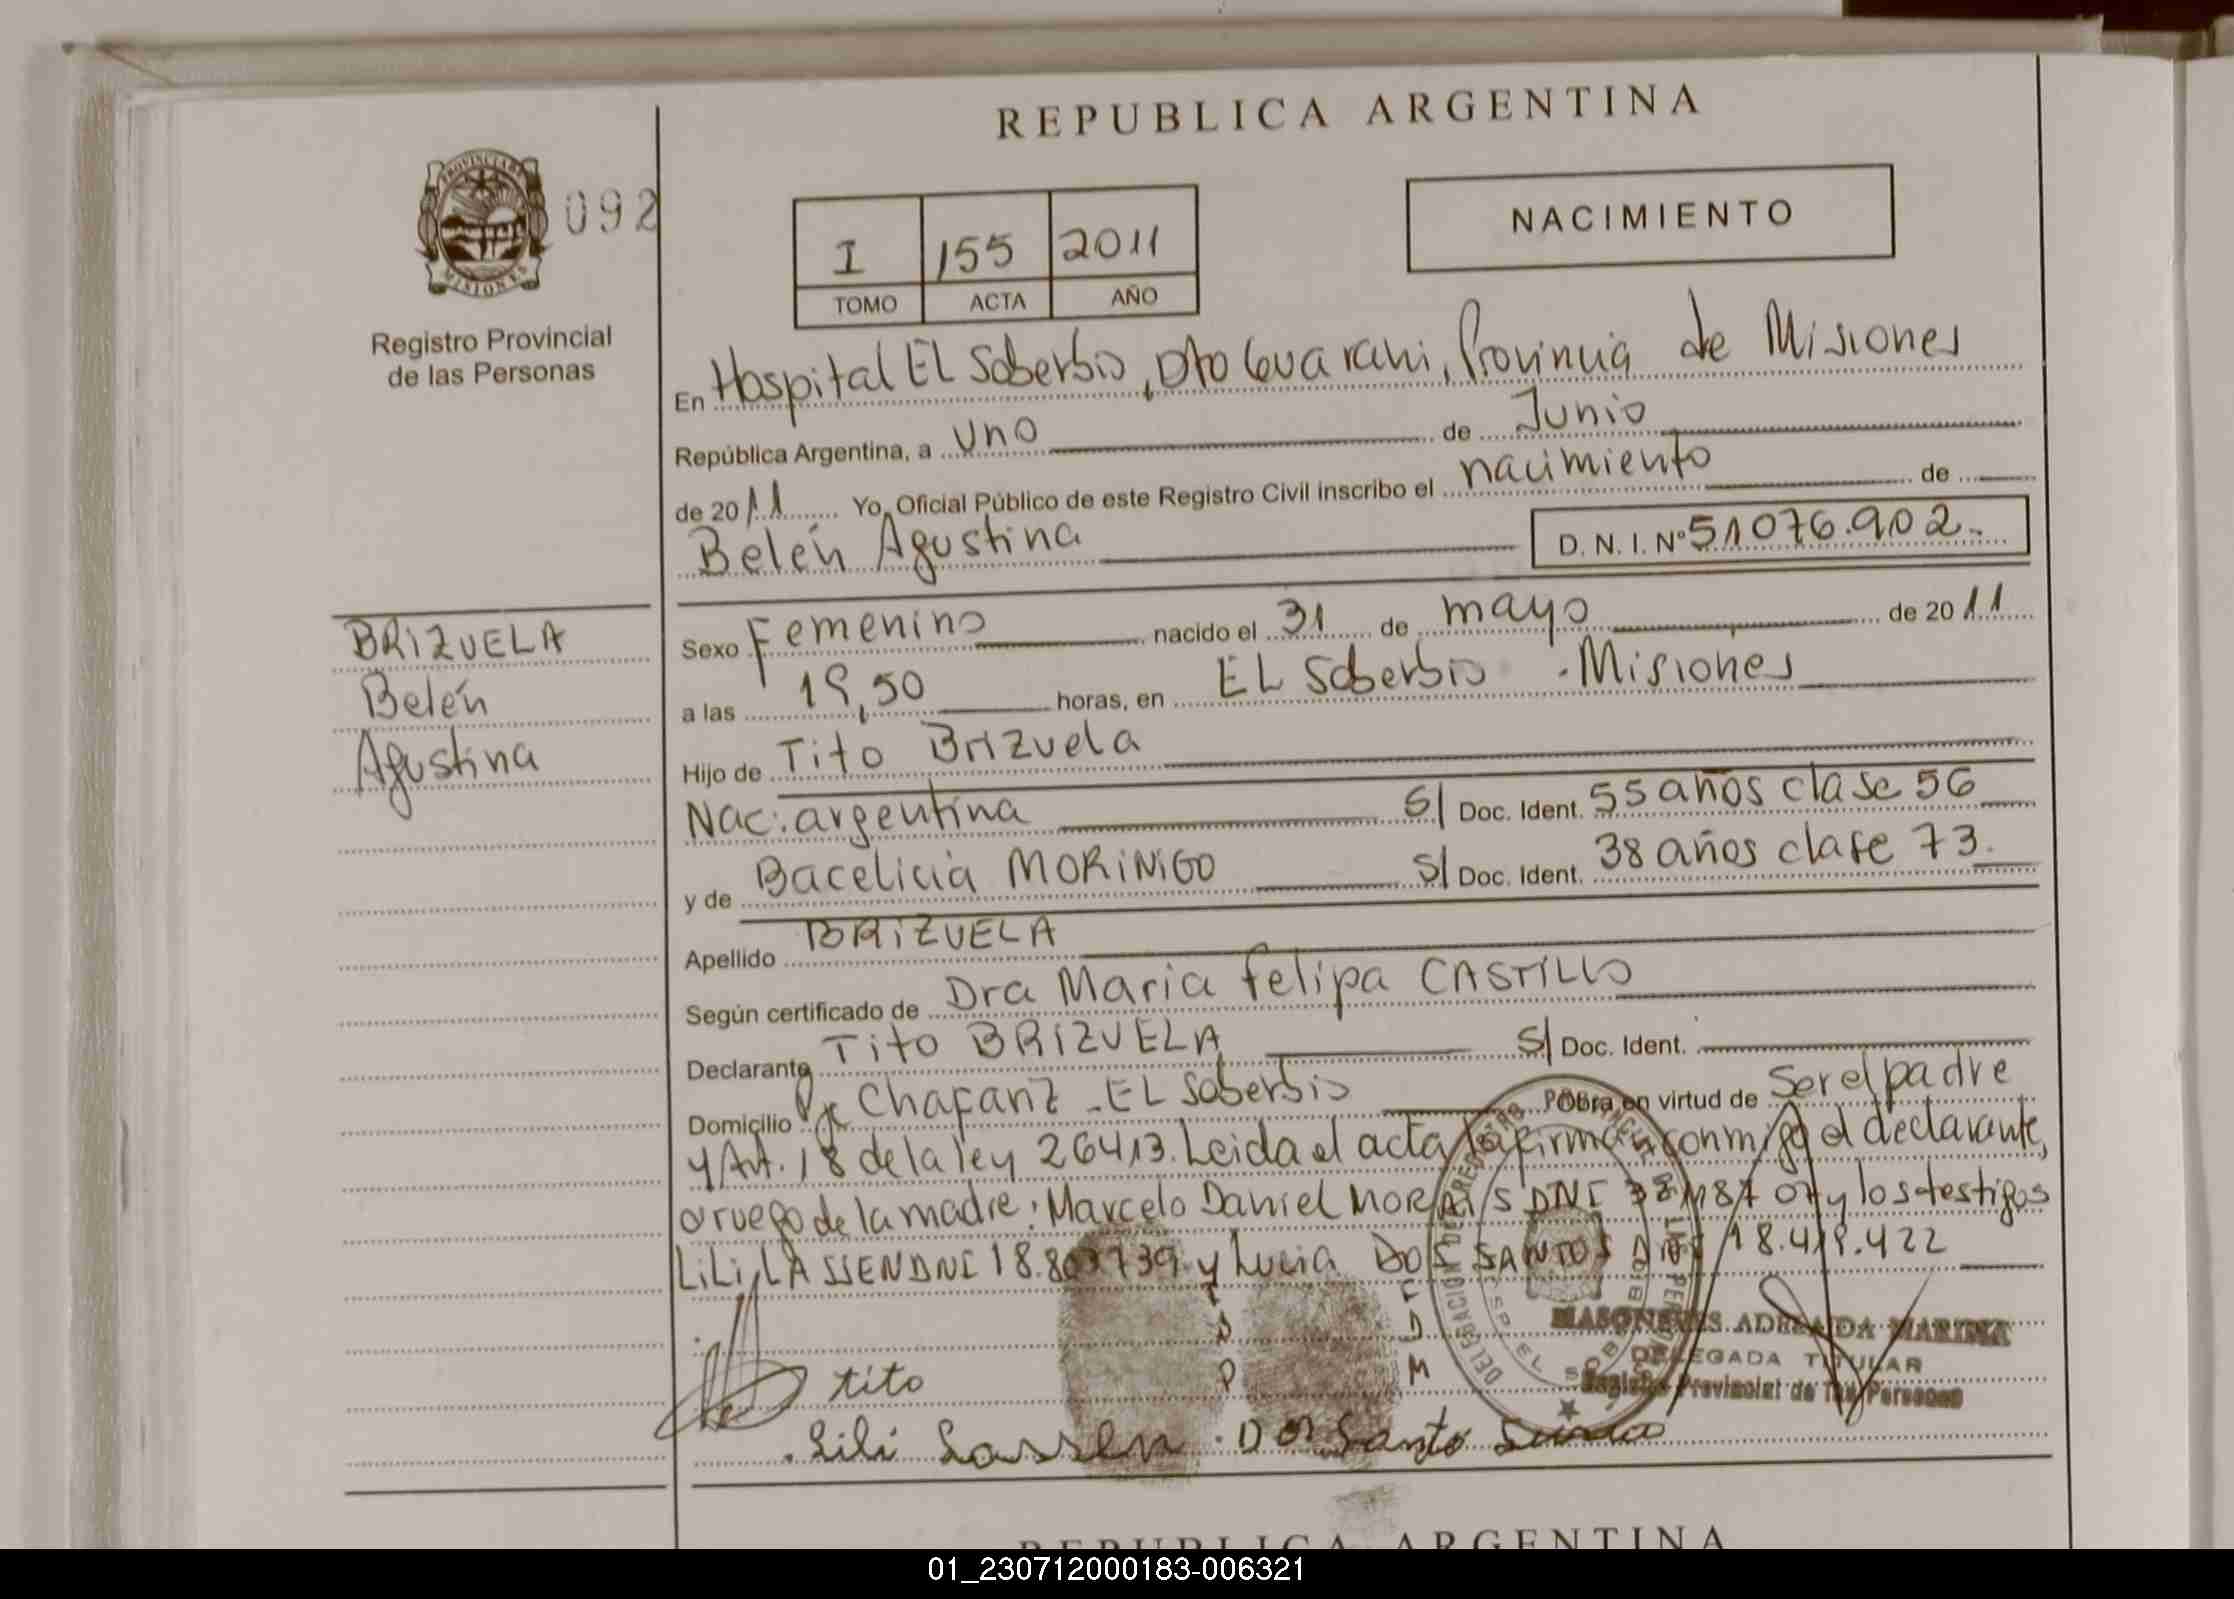 REPUBLICA ARGENTINA
PROVINCIA DE
MISIONES
092
Registro Provincial
de las Personas
I 155 2011
TOMO ACTA AÑO
NACIMIENTO
En Hospital EL Soberbio, Dto Guarani, Provincia de Misiones
República Argentina, a uno de Junio
de 2011 Yo, Oficial Público de este Registro Civil inscribo el nacimiento de
Belén Agustina D.N.I. Nº 51076.902.
BRIZUELA
Belén
Agustina
Sexo Femenino nacido el 31 de mayo de 2011
a las 19,50 horas, en EL Soberbio - Misiones
Hijo de Tito Brizuela
Nac: argentina S/ Doc. Ident. 55 años clase 56
y de Bacelicia MORINIGO S/ Doc. Ident. 38 años clase 73.
Apellido BRIZUELA
Según certificado de Dra Maria Felipa CASTILLO
Declarante Tito BRIZUELA S/ Doc. Ident.
Domicilio Chafariz - EL Soberbio Obra en virtud de Ser el padre
y Art. 18 de la ley 26413. Leida el acta la firman conmigo el declarante,
a ruego de la madre: Marcelo Daniel MORAIS DNI y los testigos
LiLi LASSEN DNI y Lucia DOS SANTOS DNI
MASONEVES ADELAIDA MARINA
DELEGADA TITULAR
Registro Provincial de las Personas
I D P
I D M
tito
Lili Lassen . Dos Santo
REPUBLICA ARGENTINA
01_230712000183-006321